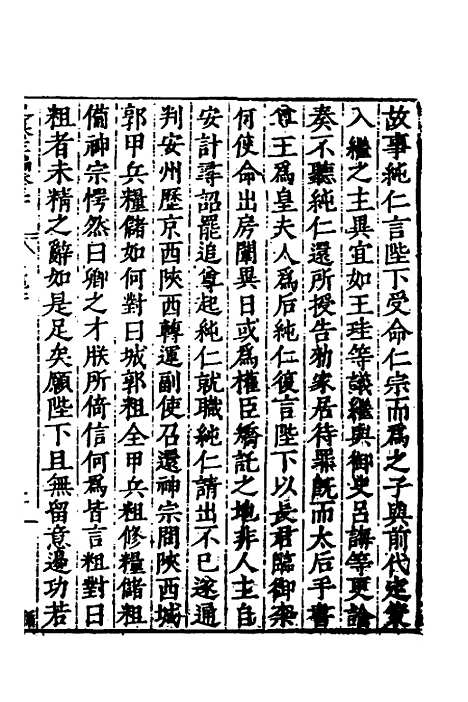 故事純仁言陛下受命仁宗而爲之子與前代定策
入繼之主異宜如王珪等議繼與御史呂誨等更論
奏不聽純仁還所授告勑家居待罪既而太后手書
尊王爲皇夫人爲后純仁復言陛下以長君臨御柰
何使命出房闈異日或爲權臣矯託之地非人主自
安計尋詔罷追尊起純仁就職純仁請出不已遂通
判安州歷京西陝西轉運副使召還神宗問陝西城
郭甲兵糧儲如何對曰城郭粗全甲兵粗修糧儲粗
備神宗愕然曰卿之才朕所倚信何爲皆言粗對曰
粗者未精之辭如是足矣願陛下且無留意邊功若